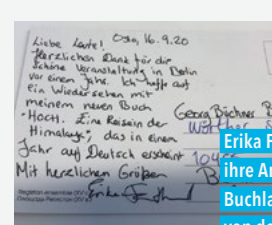 Liebe Leute! Oslo, 16.9.20
Herzlichen Dank für die
schöne Veranstaltung in Berlin
vor einem Jahr. Ich hoffe auf
ein Wiedersehen mit
meinem neuen Buch
"Hoch. Eine Reise in der
Himalaya", das in einem
Jahr auf Deutsch erscheint
Mit herzlichen Grüßen
Erika
Georg Büchner B
Wörther S
104
B
Erika F
ihre A
Buchla